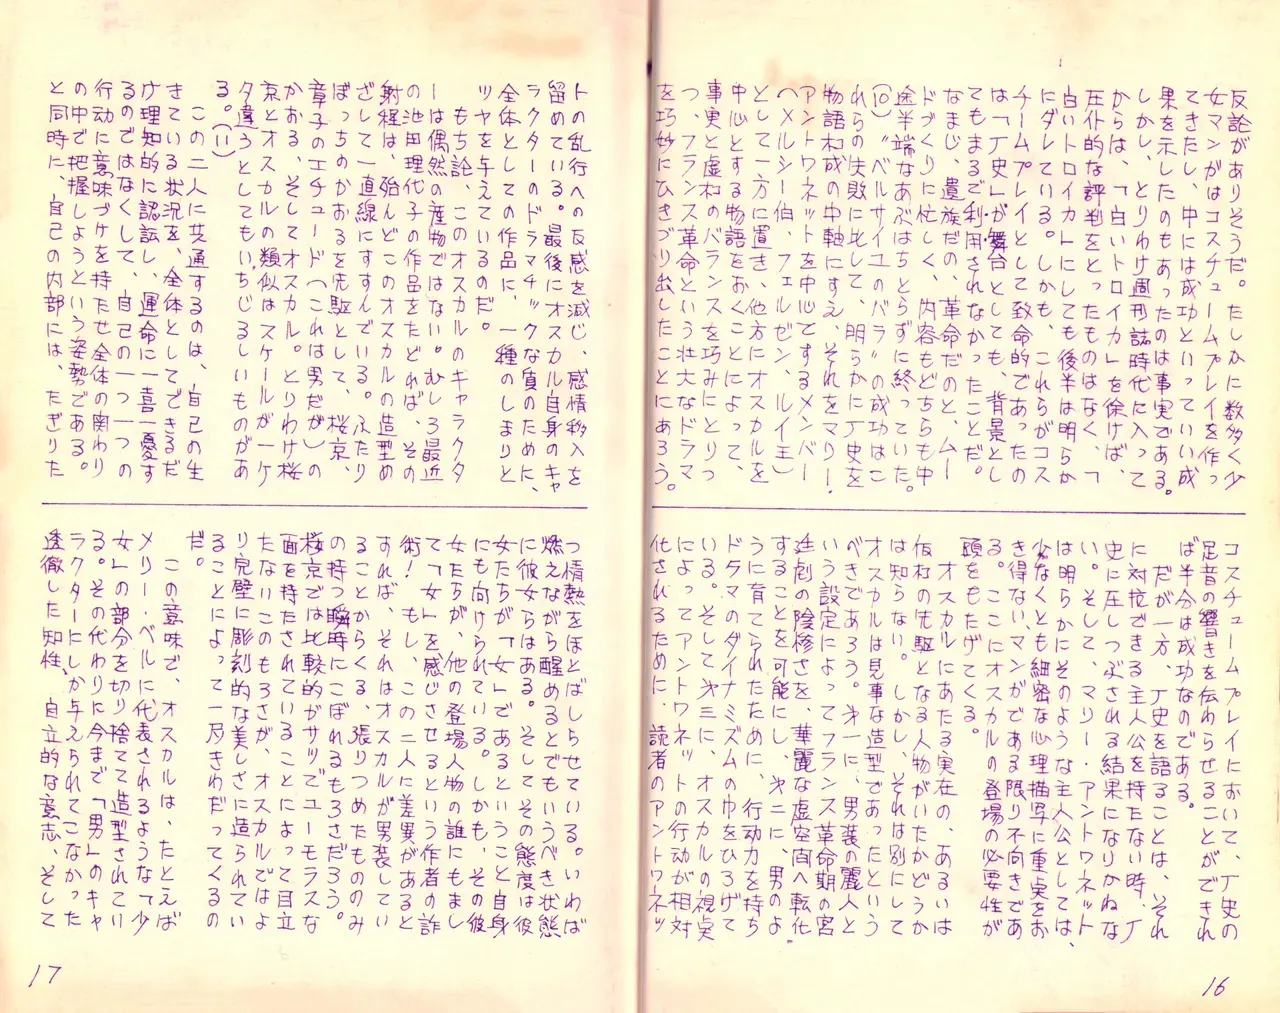 反論がありそうだ。たしかに数多く少
女マンガはコスチュームプレイを作っ
てきたし、中には成功といっていい成
果を示したのもあったのは事実である。
しかし、とりわけ週刊誌時代に入って
からは、「白いトロイカ」を徐けば、
圧仆的な評判をとったものはなく、「
白いトロイカ」にしても後半は明らか
にダレている。しかも、これらがコス
チームプレイとして致命的であったの
は「丁史」が舞台としても、背景とし
てもまるで利用されなかったことだ。
なまじ、遺族だの、革命だのと、ムー
ドづくりに忙しく、内容もどちらも中
途半端なあぶはちとらずに終っていた。
(10)〝ベルサイユのバラ〟の成功はこ
れらの失敗に比して、明らかに丁史を
物語构成の中軸にすえ、それをマリー・
アントワネットを中心でするメンバー
(メルシー伯、フェルゼン、ルイ王)
として一方に置き、他方にオスカルを
中心とする物語をおくことによって、
事実と虚构のバランスを巧みにとりつ
つ、フランス革命という壮大なドラマ
を巧妙にひきづり出したことにあろう。
コスチュームプレイにおいて、丁史の
足音の響きを伝わらせることができれ
ば半分は成功なのである。
だが一方、丁史を語ることは、それ
に対抗できる主人公を持たない時、丁
史に圧しつぶされる結果になりかねな
い。そして、マリー・アントワネット
は明らかにそのような主人公としては、
少なくとも細密な心理描写に重点をお
き得ないマンガである限り不向きであ
る。ここにオスカルの登場の必要性が
頭をもたげてくる。
オスカルにあたる実在の、あるいは
仮构の先駆となる人物がいたかどうか
は知らない。しかし、それは別にして
オスカルは見事な造型であったという
べきであろう。才一に、男装の麗人と
いう設定によってフランス革命期の宮
廷劇の陰惨さを、華麗な虚空间へ転化
することを可能にし、才二に、男のよ
うに育てられたために、行動力を持ち
ドラマのダイナミズムの巾をひろげて
いる。そして才三に、オスカルの視点
によってアントワネットの行動が相対
化されるために、読者のアントワネッ
16
トの乱行への反感を減じ、感情移入を
留めている。最後にオスカル自身のキャ
ラクターのドラマチックな質のために、
全体としての作品に、一種のしまりと
ツヤを与えているのだ。
もち論、このオスカルのキャラクタ
ーは偶然の産物ではない。むしろ最近
の池田理代子の作品をたどれば、その
射程は、殆んどこのオスカルの造型め
ざして一直線にすすんでいる。ふたり
ぼっちのかおるを先駆として、桜京、
章子のエチュード(これは男だが)の
かおる、そしてオスカル。とりわけ桜
京とオスカルの類似はスケールが一ケ
タ違うとしてもいちじるしいものがあ
る。(11)
この二人に共通するのは、自己の生
きている状況を、全体としてできるだ
け理知的に認識し、運命に一喜一憂す
るのではなくして、自己の一つ一つの
行動に意味づけを持たせ全体の関わり
の中で把握しようという姿勢である。
と同時に、自己の内部には、たぎりた
つ情熱をほとばしらせている。いわば
燃えながら醒めるとでもいうべき状態
に彼女らはある。そしてその態度は彼
女たちが「女」であるということ自身
にも向けられている。しかも、その彼
女たちが、他の登場人物の誰にもまし
て「女」を感じさせるという作者の詐
術!もし、この二人に差異があると
すれば、それはオスカルが男装してい
ることからくる、張りつめたもののみ
の持つ瞬時にこぼれるもろさだろう。
桜京では比較的ガサツでユーモラスな
面を持たされていることによって目立
たないこのもろさが、オスカルではよ
り完璧に彫刻的な美しさに造られてい
ることによって一段きわだってくるの
だ。
この意味で、オスカルは、たとえば
メリー・ベルに代表されるような「少
女」の部分を切り捨てて造型されてい
る。その代わりに今まで「男」のキャ
ラクターにしか与えられてこなかった
透徹した知性、自立的な意志、そして
17